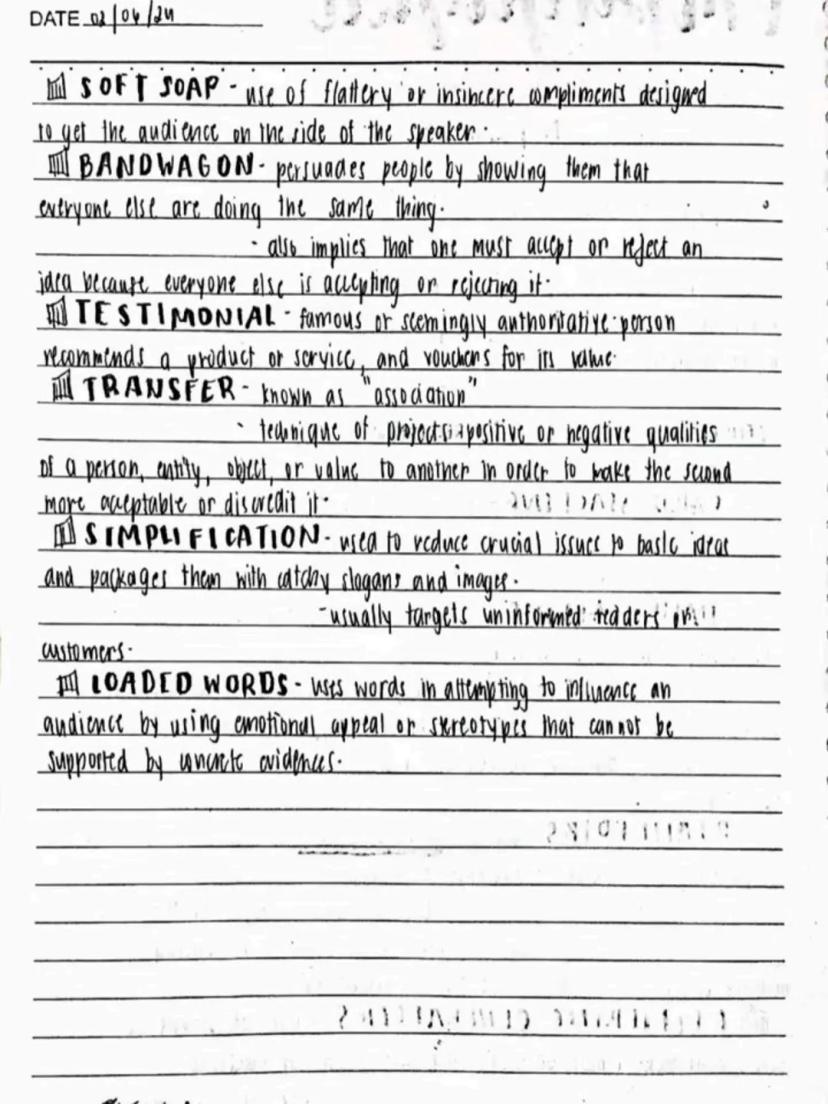 DATE 02/06/24
SOFT SOAP - use of flattery or insincere compliments designed
to get the audience on the side of the speaker.
BANDWAGON - persuades people by showing them that
everyone else are doing the same thing.
- also implies that one must accept or reject an
idea because everyone else is accepting or rejecting it.
TESTIMONIAL - famous or seemingly authoritative person
recommends a product or service, and vouchers for its value.
TRANSFER - known as "association"
- technique of projects positive or negative qualities
of a person, entity, object, or value to another in order to make the second
more acceptable or discredit it.
SIMPLIFICATION - used to reduce crucial issues to basic ideas
and packages them with catchy slogans and images.
- usually targets uninformed readers or
customers.
LOADED WORDS - uses words in attempting to influence an
audience by using emotional appeal or stereotypes that cannot be
supported by concrete evidences.